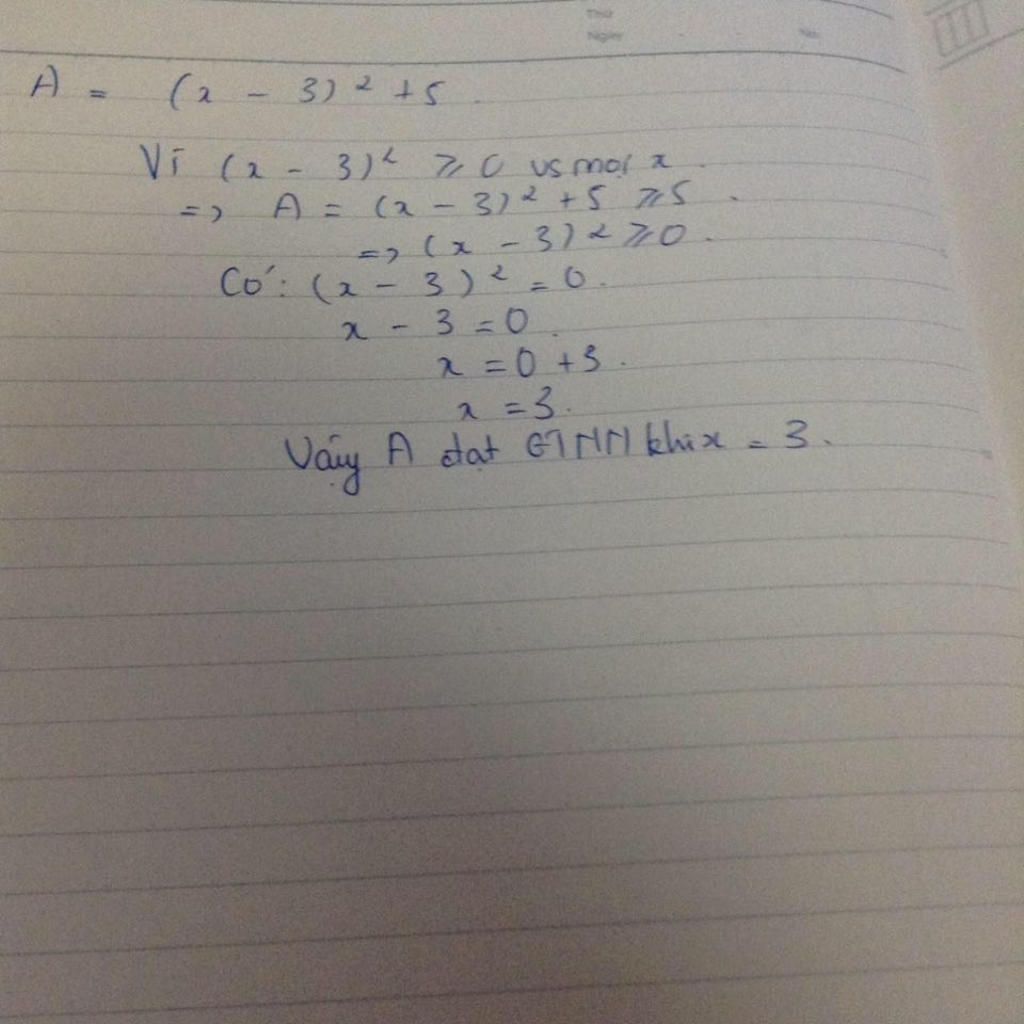 Thứ
Ngày No.
A = (x - 3)² + 5.
Vì (x - 3)² ⩾ 0 vs mọi x.
=> A = (x - 3)² + 5 ⩾ 5.
=> (x - 3)² ⩾ 0.
Có: (x - 3)² = 0.
x - 3 = 0.
x = 0 + 3.
x = 3.
Vậy A đạt GTNN khi x = 3.